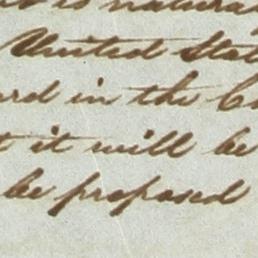 is natura
United Stat
ard in the C
t it will be
be proposed